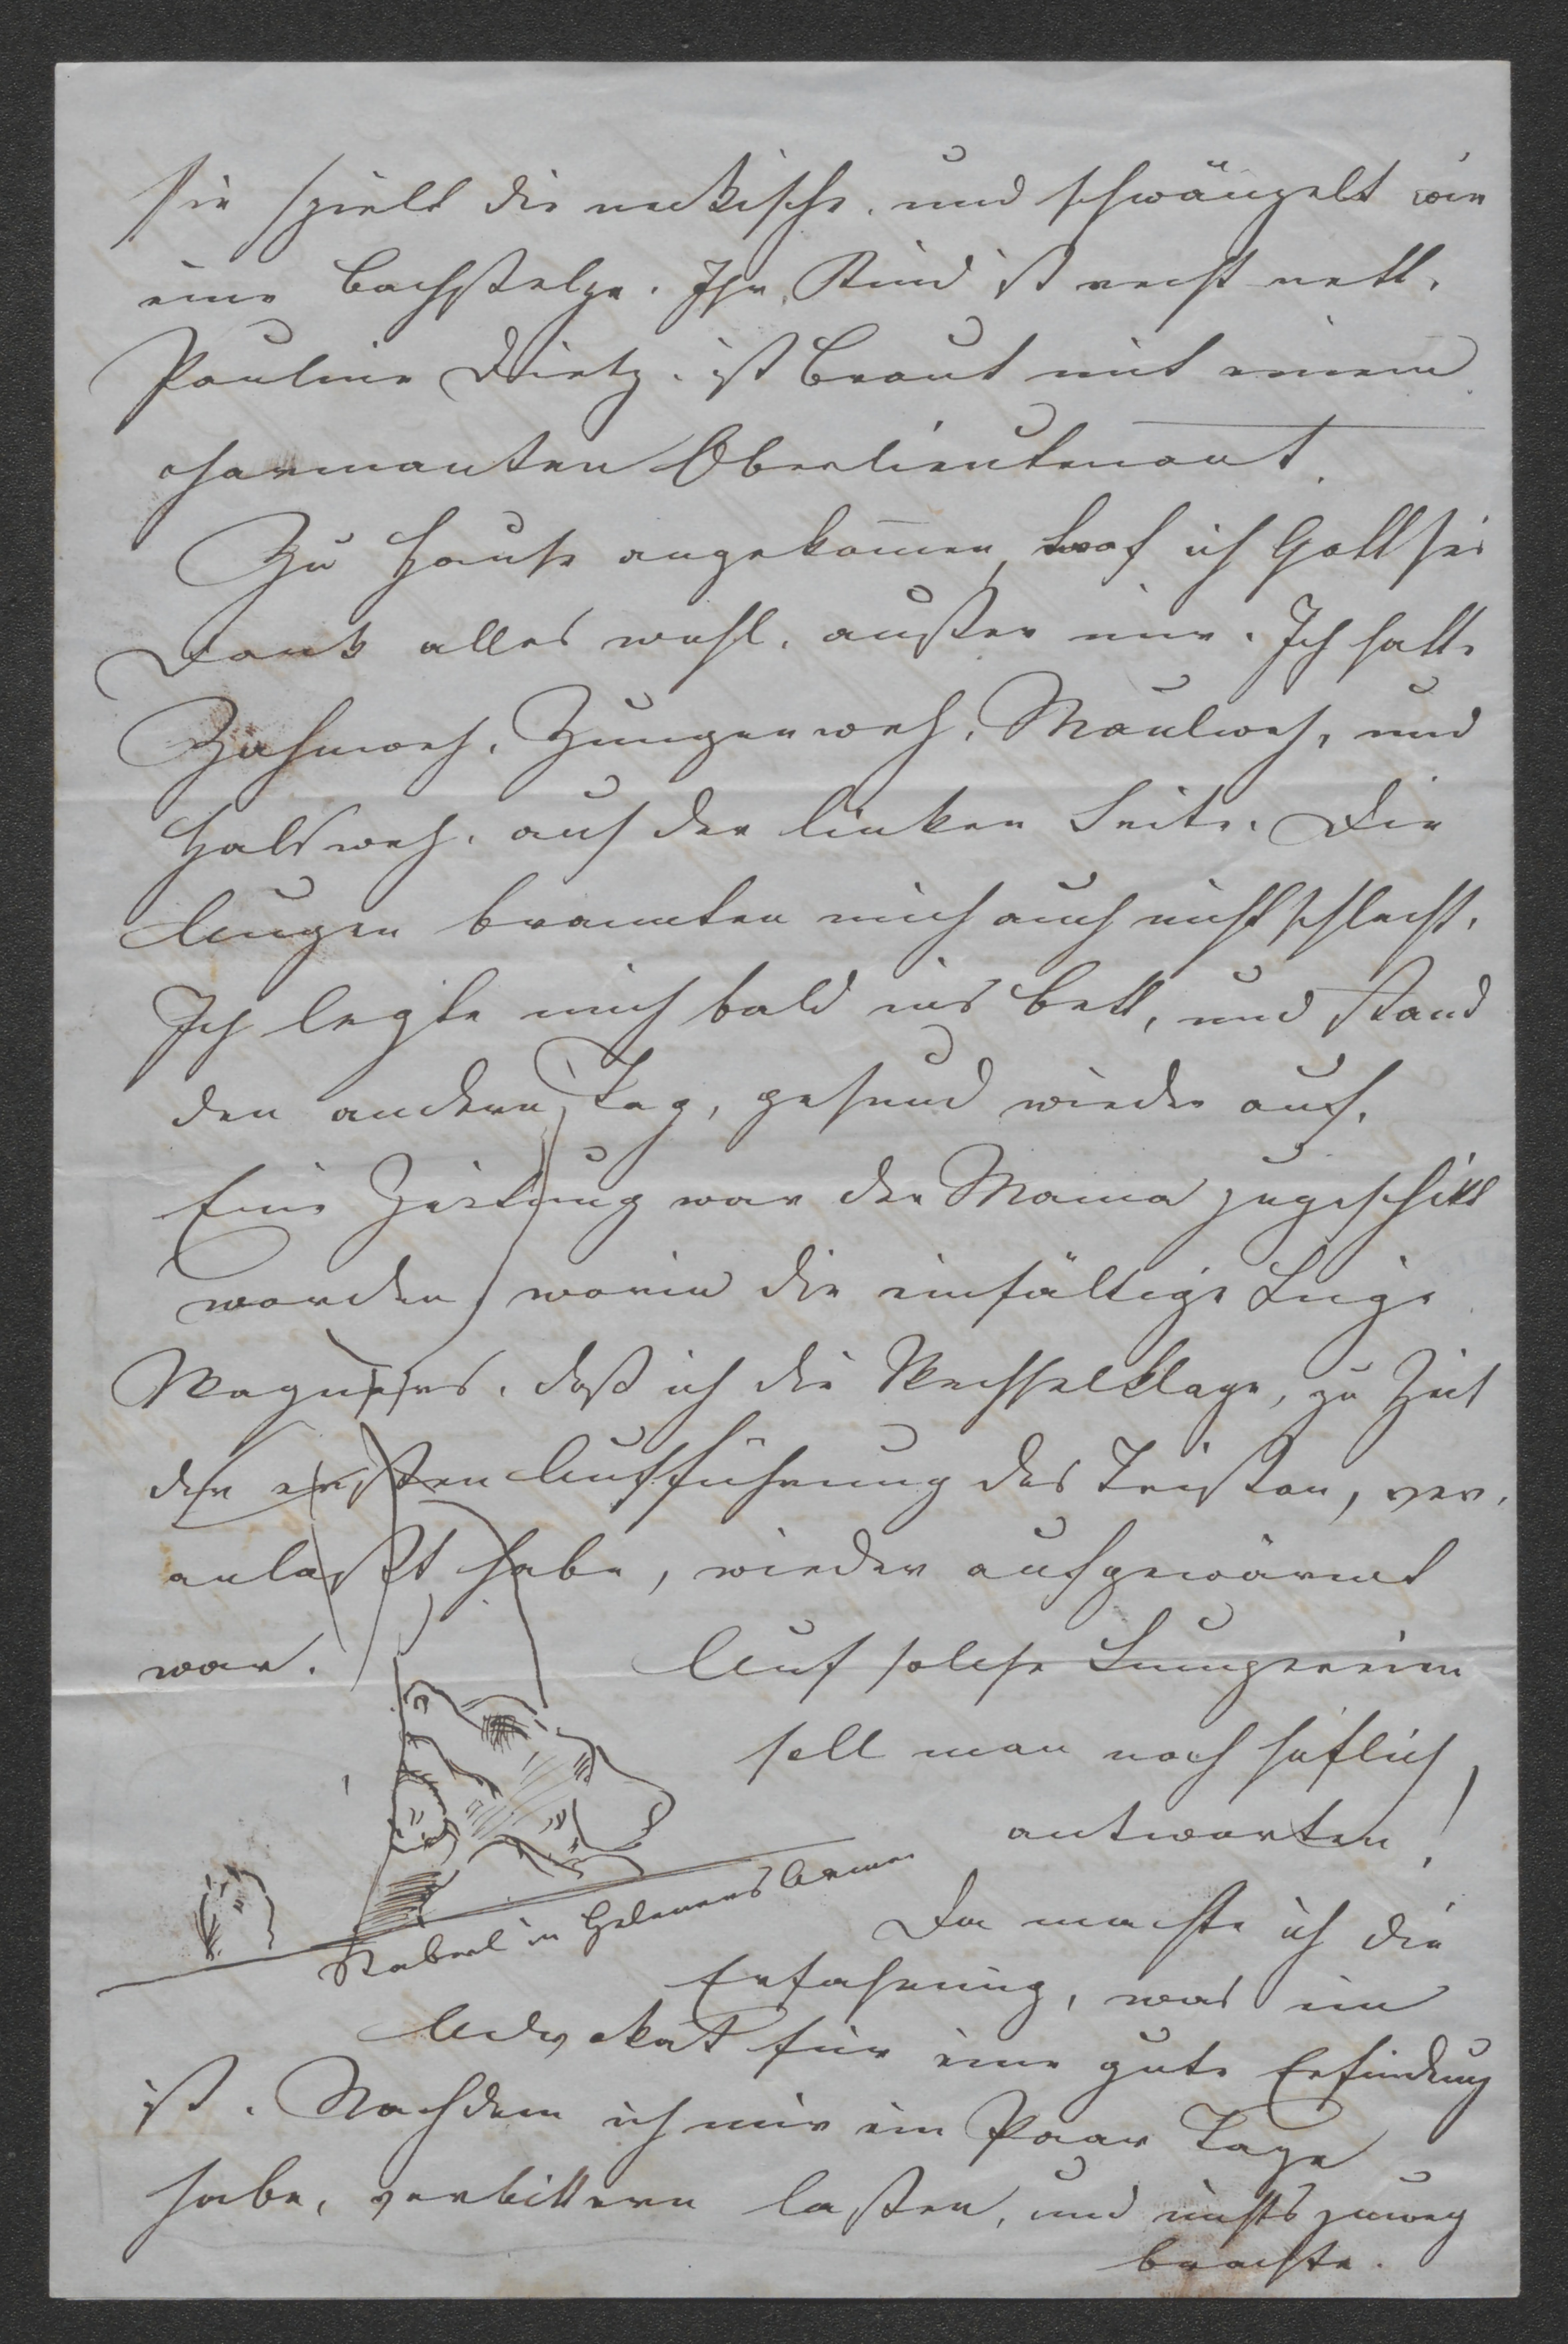 Sie spielt die neckische, und schwänzelt wie
eine Bachstelze. Ihr Kind ist recht nett.
Pauline Dietz. ist Braut mit einem
charmanten Oberlieutenant.
Zu Hause angekom̄en, traf ich Gott sei
Dank alles wohl, außer mir. Ich hatte
Zahnweh, Zungenweh, Maulweh, und
Halsweh, auf der linken Seite. Die
Augen brannten mich auch nicht schlecht.
Ich legte mich bald ins Bett, und stand
den andern Tag, gesund wieder auf.
Eine Zeitung war der Mama zugeschikt
worden, worin die einfältige Lüge
Wagners, daß ich die Wechselklage, zu Zeit
der ersten Aufführung des Tristan, ver-
anlaßt habe, wieder aufgewärmt
war. Auf solche Lumpereien
soll man noch höflich
antworten!
in Helenens Armen
Da machte ich die
Erfahrung, was ein
Advokat für eine gute Erfindung
ist. Nachdem ich mir ein Paar Tage
habe, verbittern laßen, und nichts zuweg
brachte.